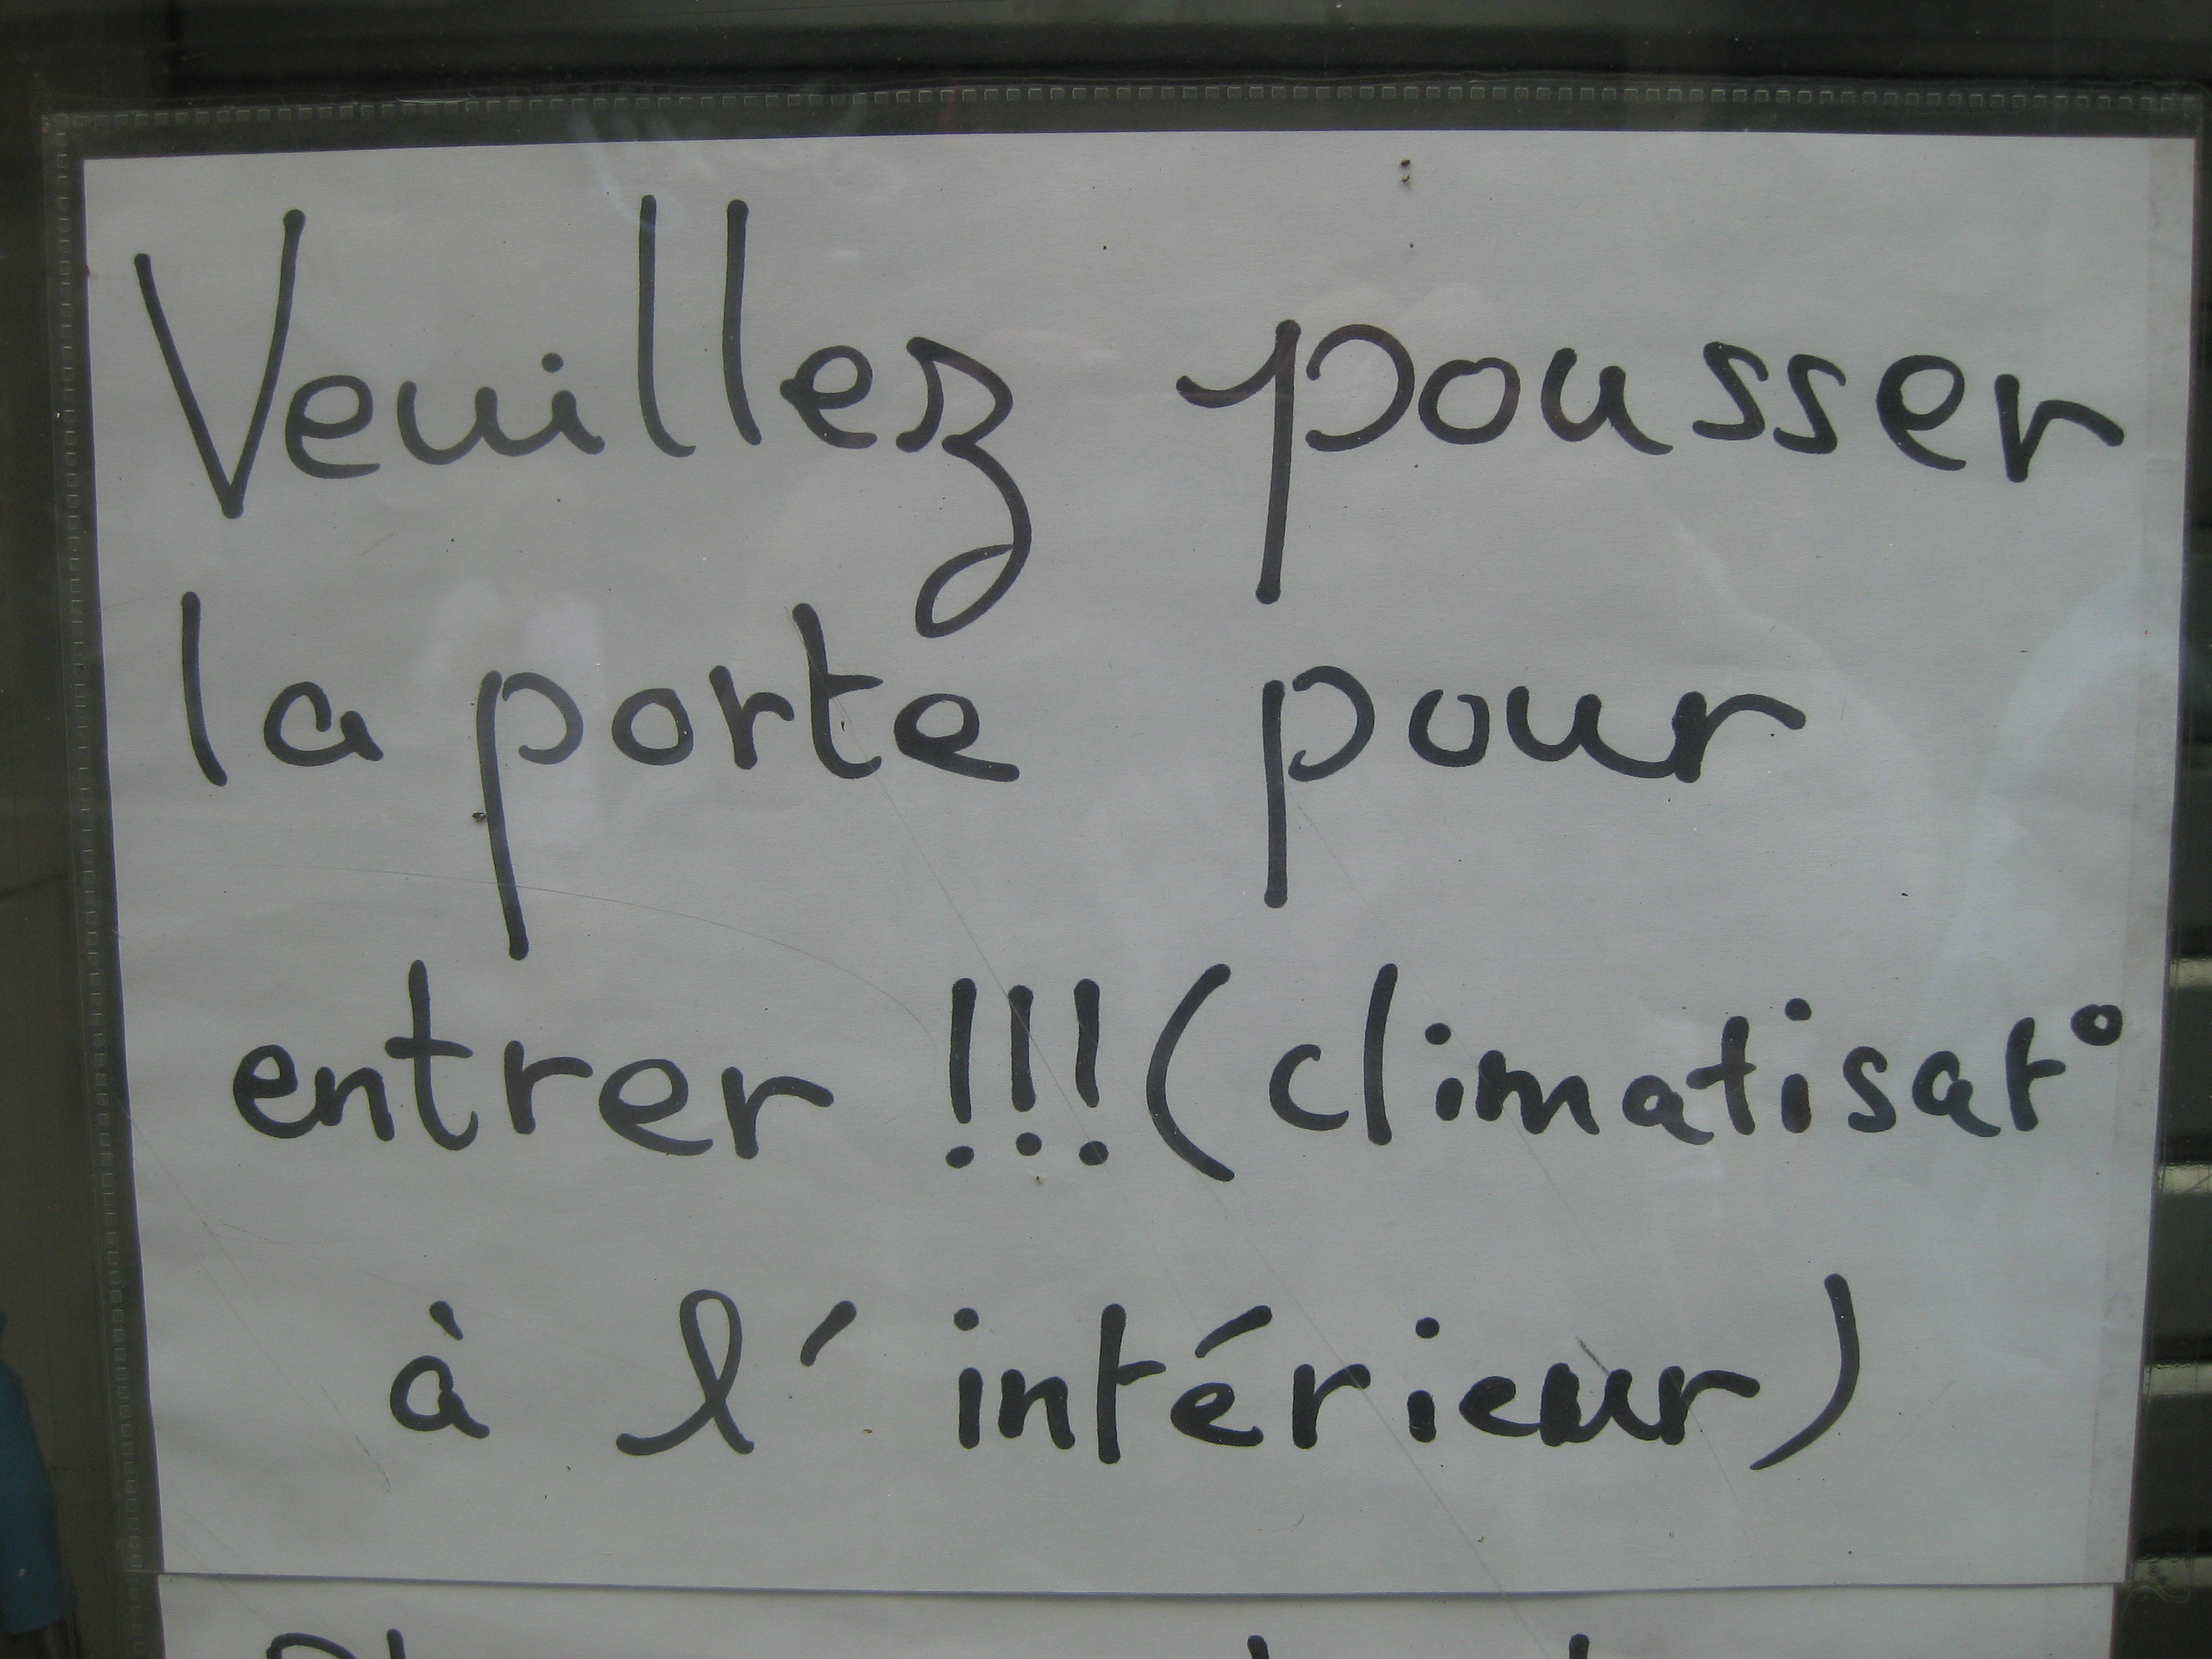 Veuillez pousser
la porte pour
entrer !!! (climatisat°
à l'intérieur)